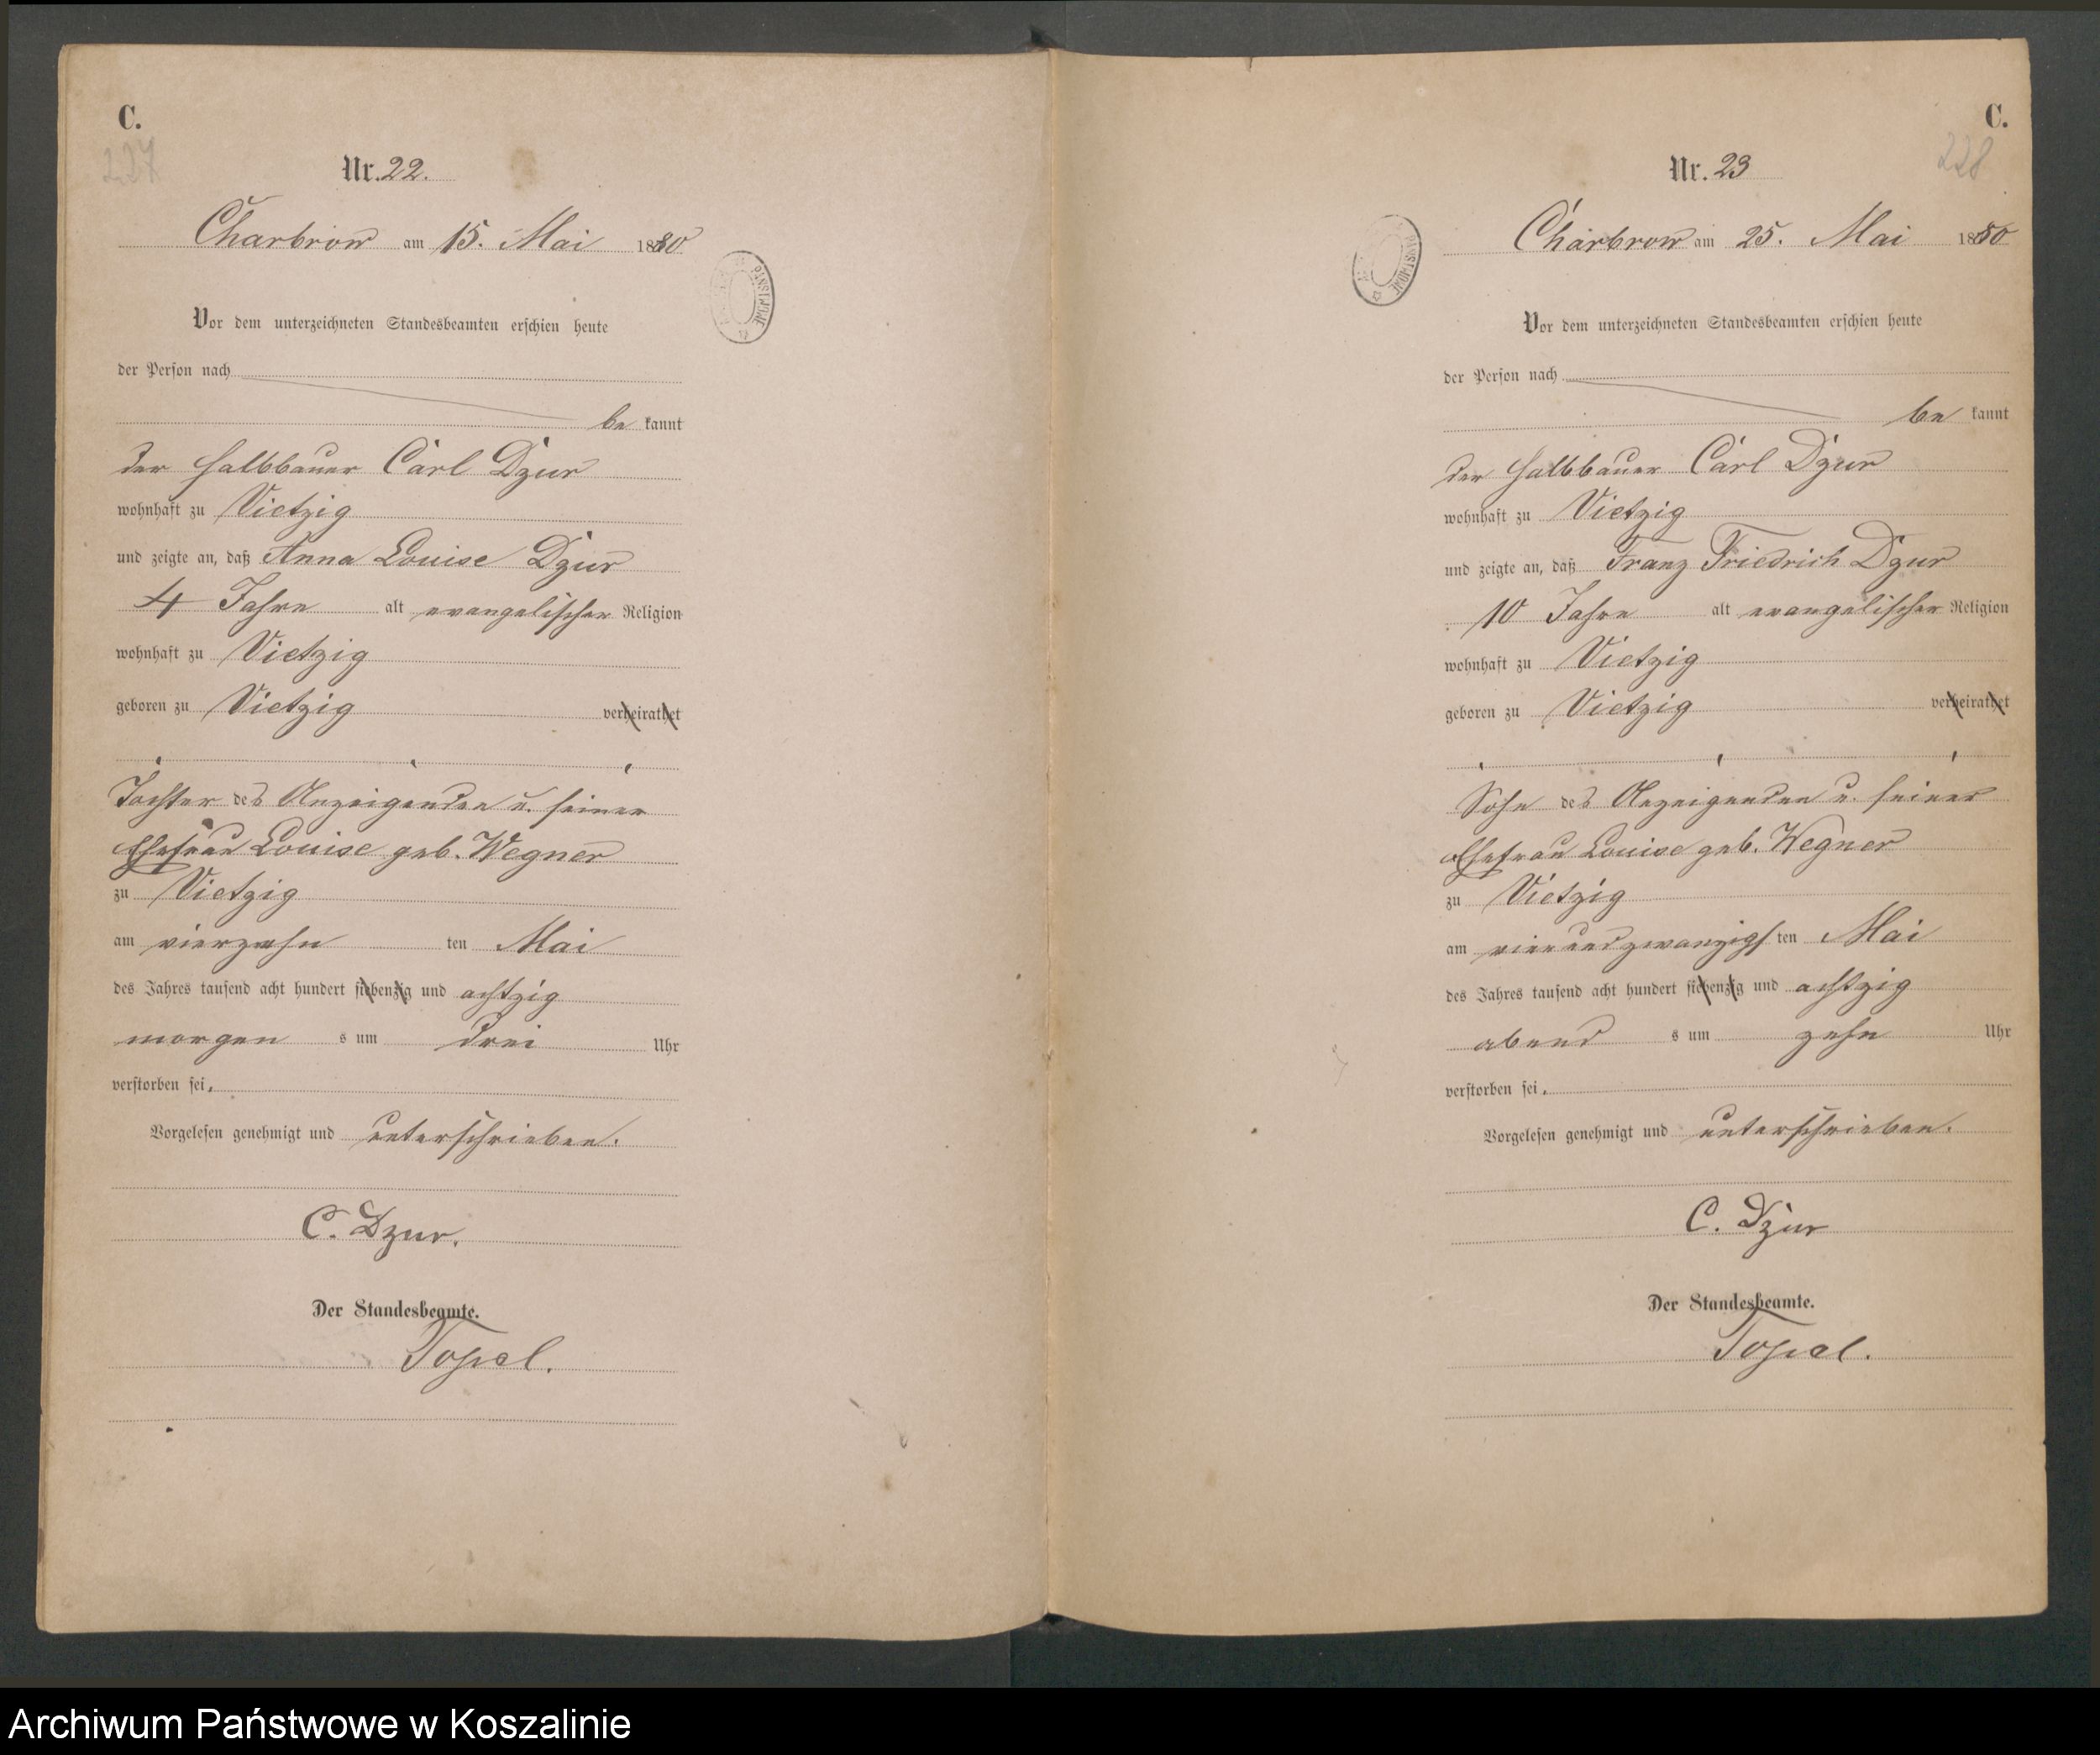 C.
227
Nr. 22.
Charbrow am 15. Mai 1880
Vor dem unterzeichneten Standesbeamten erschien heute
der Person nach
be kannt
der Halbbauer Carl Dzur
wohnhaft zu Vietzig
und zeigte an, daß Anna Louise Dzur
4 Jahre alt evangelischer Religion
wohnhaft zu Vietzig
geboren zu Vietzig verheirathet
Tochter des Anzeigenden u. seiner
Ehefrau Louise geb. Wegner
zu Vietzig
am vierzehn ten Mai
des Jahres tausend acht hundert siebenzig und achtzig
morgen s um drei Uhr
verstorben sei.
Vorgelesen genehmigt und unterschrieben.
C. Dzur.
Der Standesbeamte.
Topel.
C.
228
Nr. 23
Charbrow am 25. Mai 1880
Vor dem unterzeichneten Standesbeamten erschien heute
der Person nach
be kannt
der Halbbauer Carl Dzur
wohnhaft zu Vietzig
und zeigte an, daß Franz Friedrich Dzur
10 Jahre alt evangelischer Religion
wohnhaft zu Vietzig
geboren zu Vietzig verheirathet
Sohn des Anzeigenden u. seiner
Ehefrau Louise geb. Wegner
zu Vietzig
am vier und zwanzigs ten Mai
des Jahres tausend acht hundert siebenzig und achtzig
abend s um zehn Uhr
verstorben sei.
Vorgelesen genehmigt und unterschrieben.
C. Dzur
Der Standesbeamte.
Topel.
Archiwum Państwowe w Koszalinie